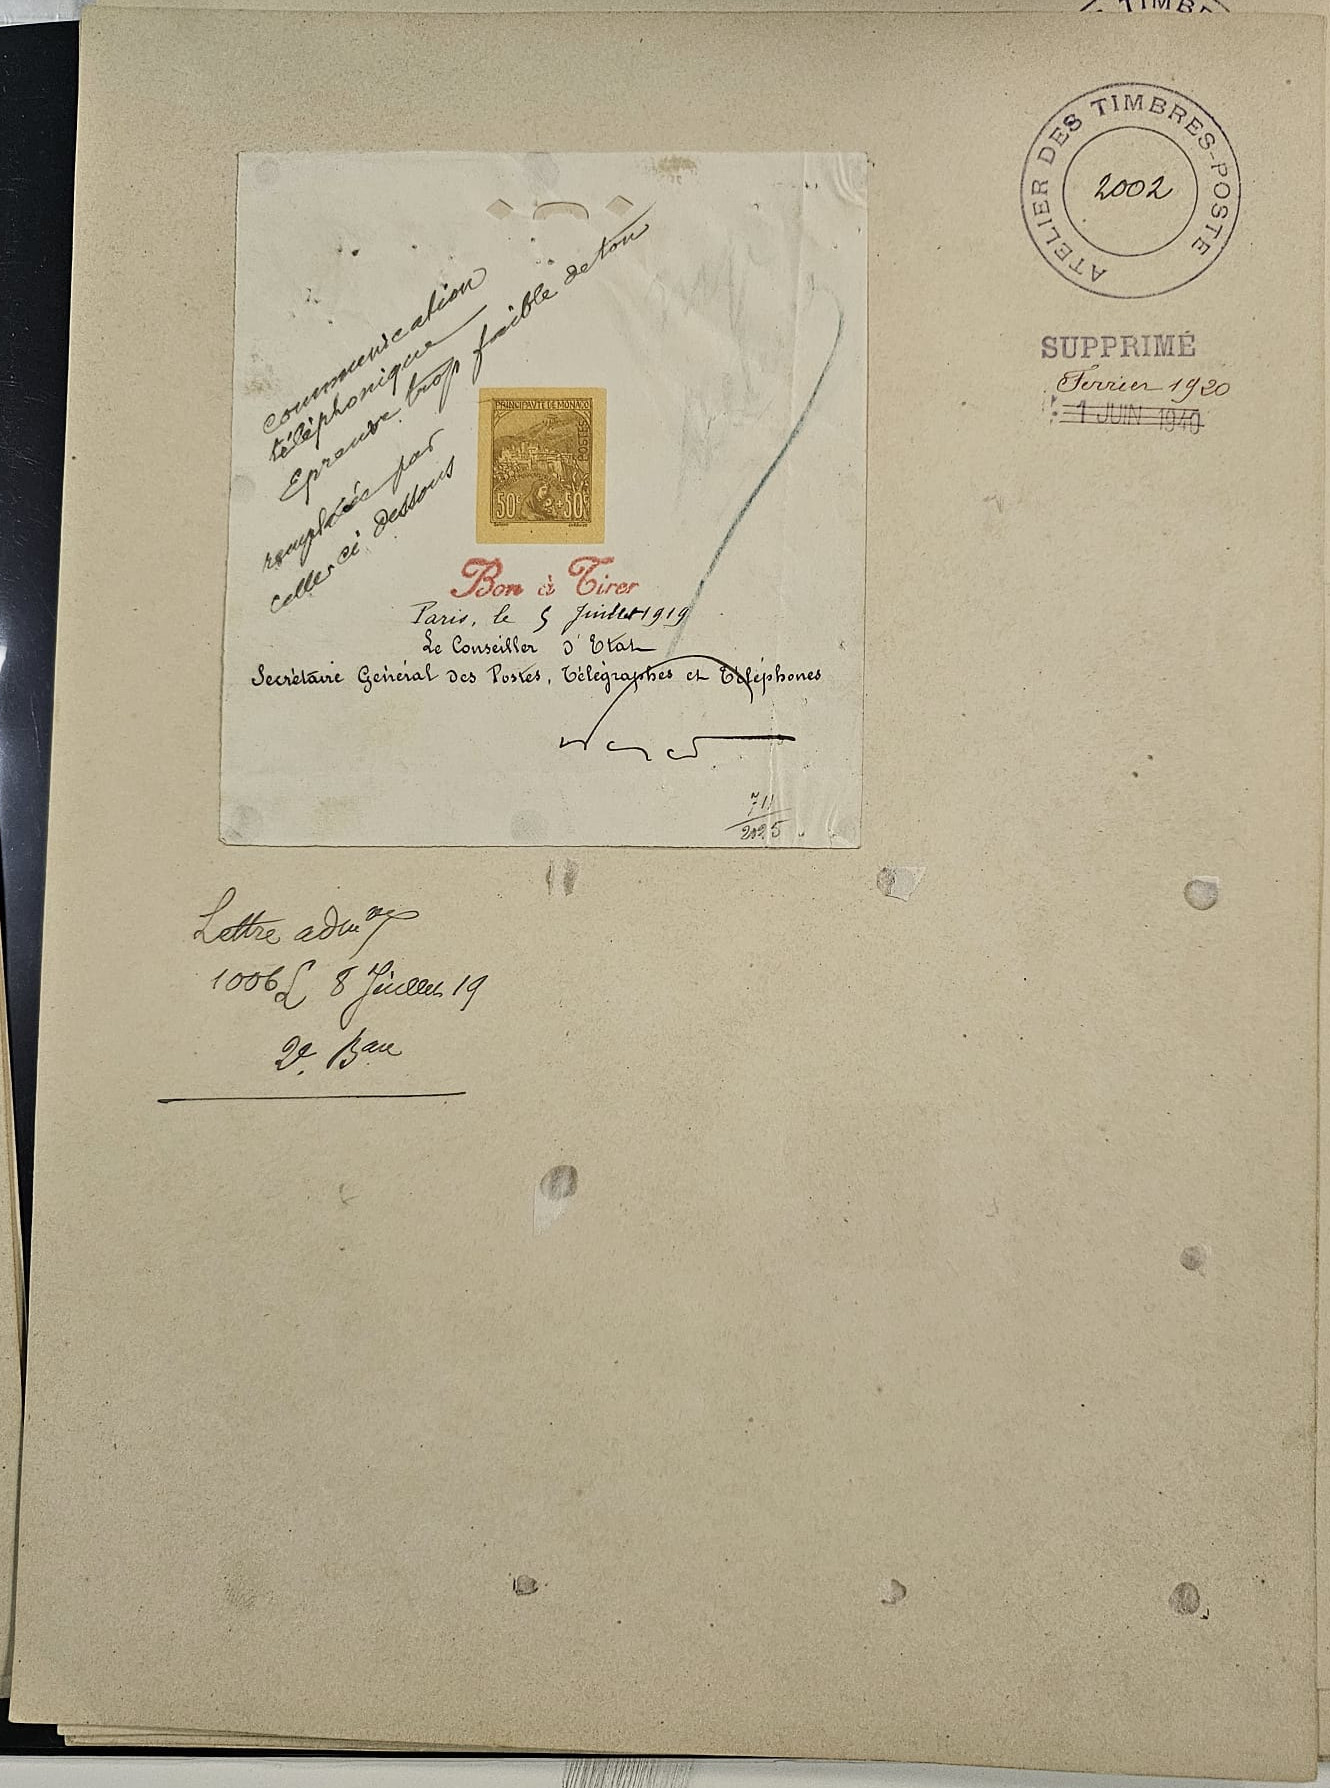 TIMBRE
ATELIER DES TIMBRES-POSTE
2002
SUPPRIMÉ
Ferrier 1920
1 JUIN 1940
communication
téléphonique
Epreuve trop faible de ton
remplacée par
celle ci dessous
PRINCIPAUTÉ DE MONACO
POSTES
50c +50c
Bon à Tirer
Paris, le 5 Juillet 1919
Le Conseiller d'Etat
Secrétaire Général des Postes, Télégraphes et Téléphones
711
2025
Lettre admve
1006 L 8 Juillet 19
2e. Bau